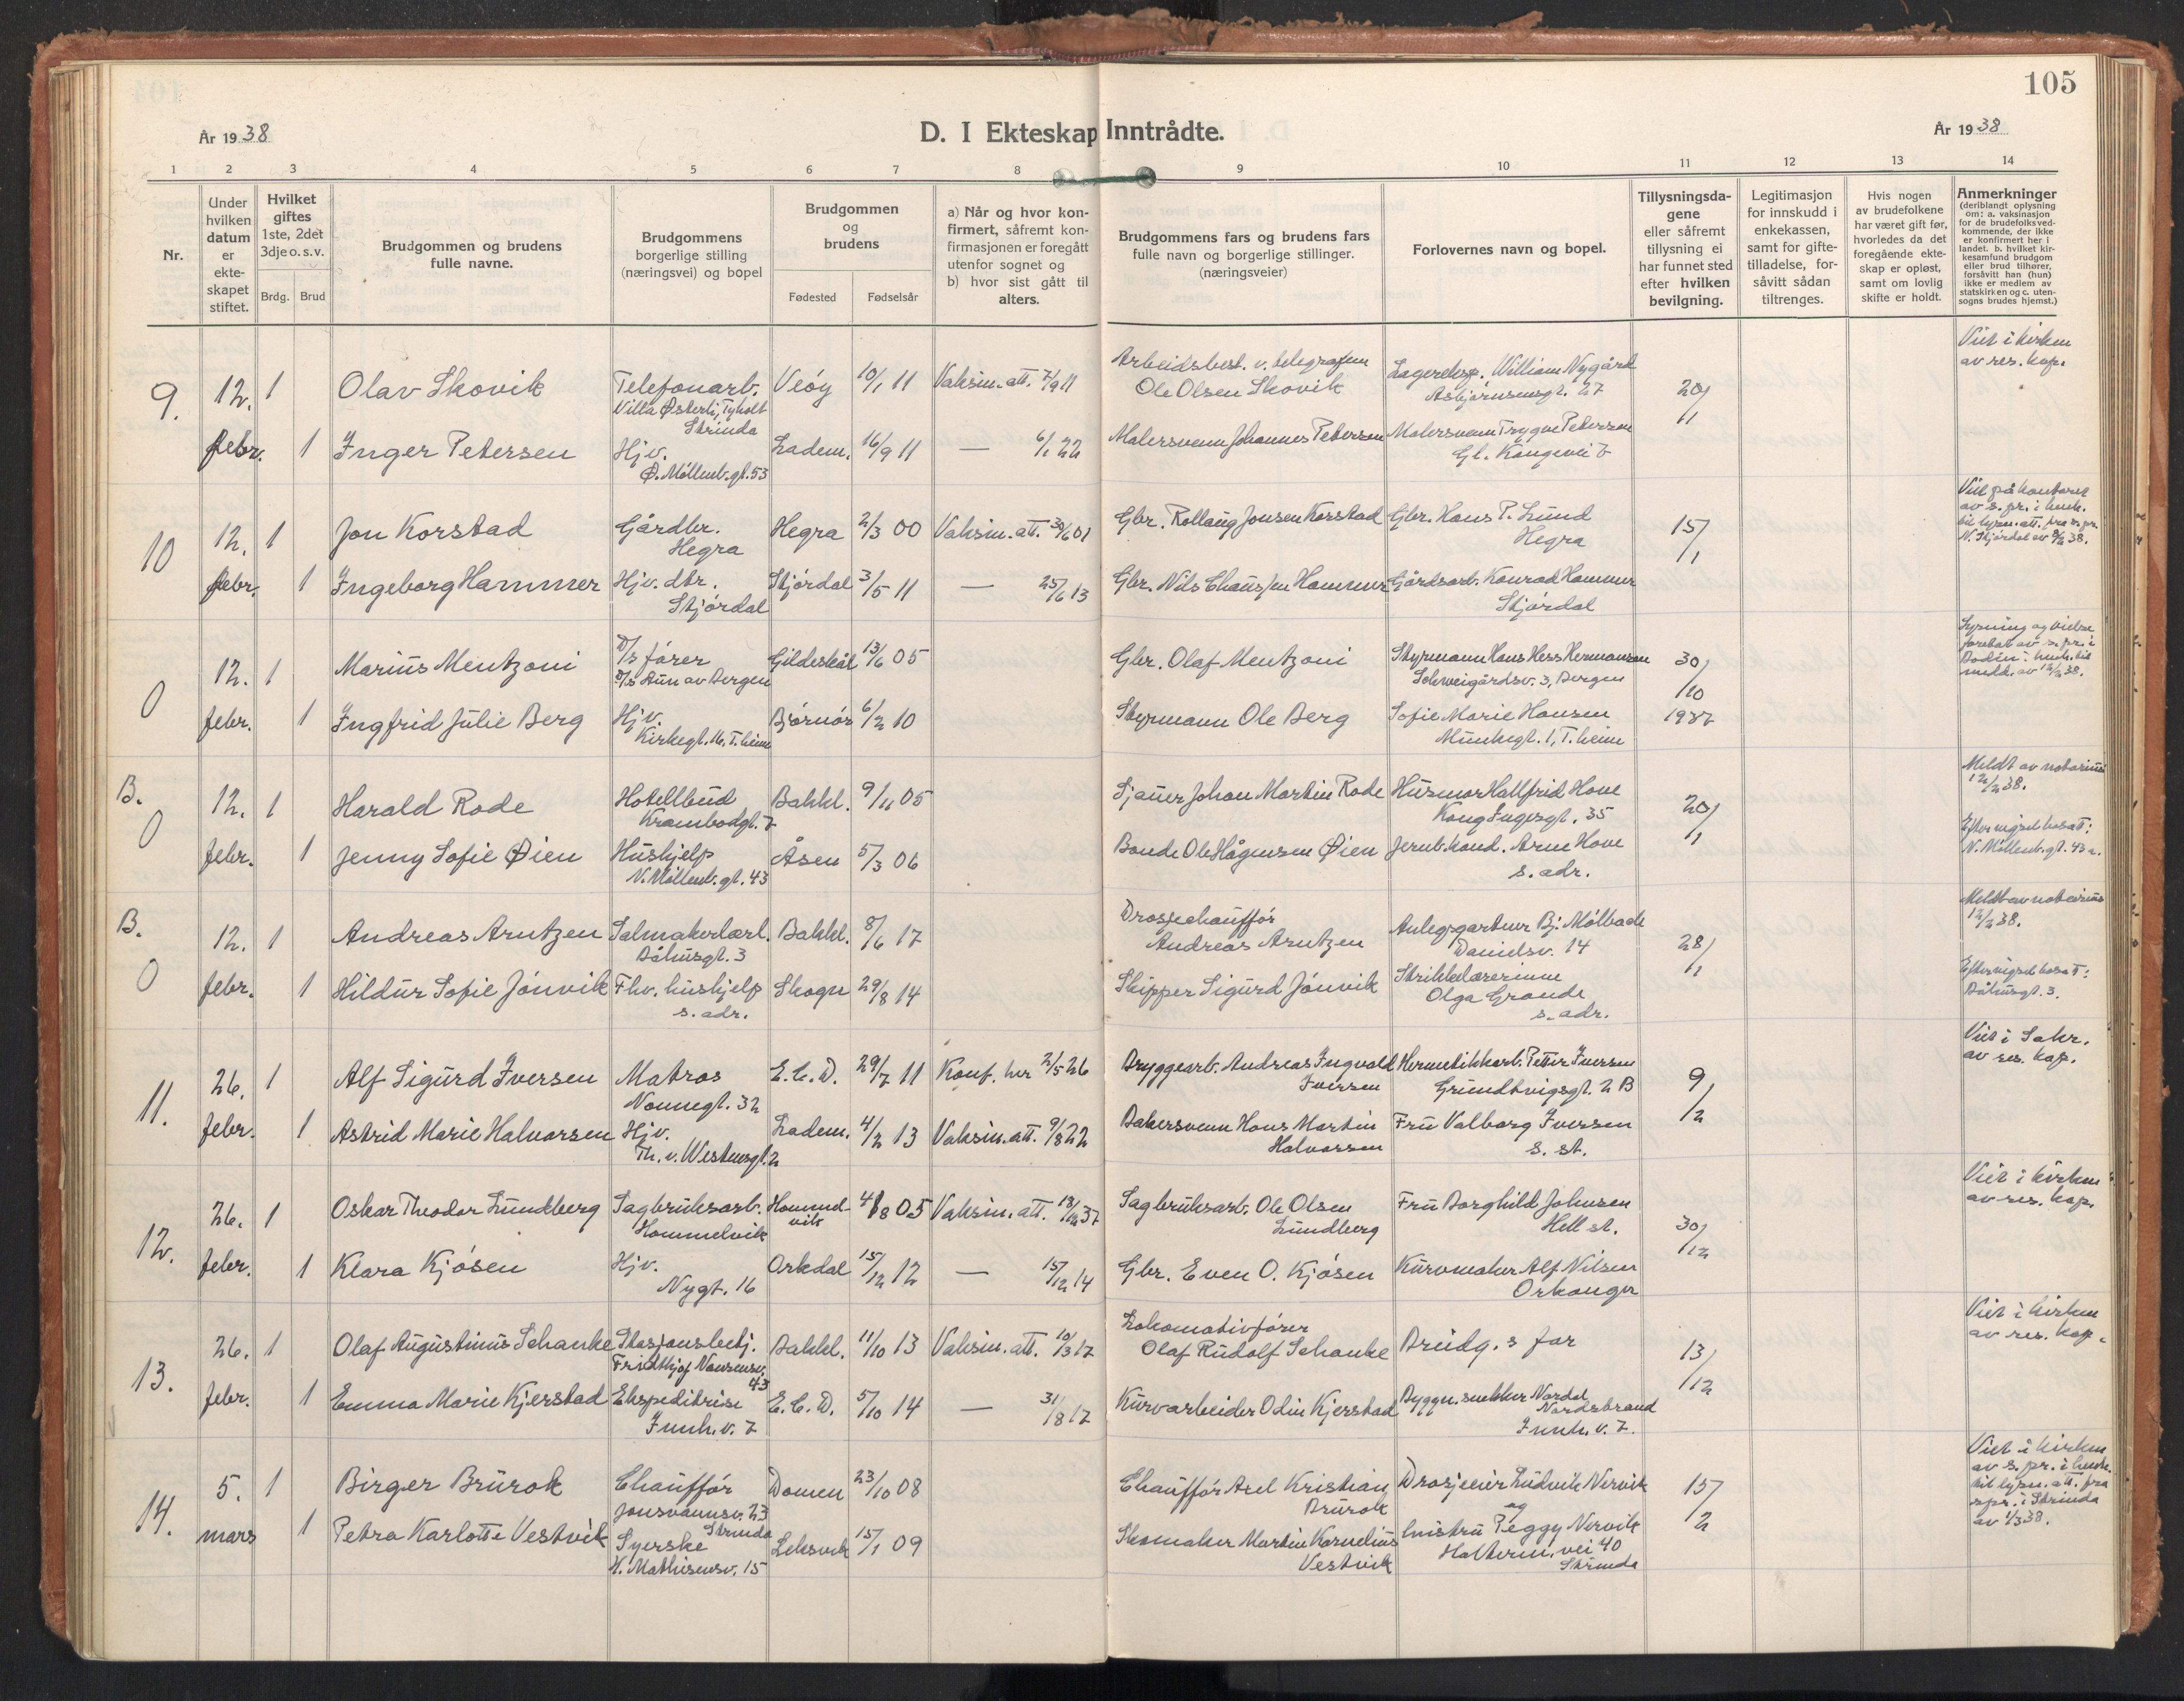 105
År 1938
D. I Ekteskap Inntrådte.
År 1938
1 2 3 4 5 6 7 8 9 10 11 12 13 14
Nr.
Under hvilken datum er ekte-skapet stiftet.
Hvilket giftes 1ste, 2det 3dje o. s. v.
Brdg. Brud
Brudgommen og brudens fulle navne.
Brudgommens borgerlige stilling (næringsvei) og bopel
Brudgommen og brudens
Fødested Fødselsår
a) Når og hvor kon-firmert, såfremt kon-firmasjonen er foregått utenfor sognet og b) hvor sist gått til alters.
Brudgommens fars og brudens fars fulle navn og borgerlige stillinger. (næringsveier)
Forlovernes navn og bopel.
Tillysningsda-gene eller såfremt tillysning ei har funnet sted efter hvilken bevilgning.
Legitimasjon for innskudd i enkekassen, samt for gifte-tilladelse, for-såvitt sådan tiltrenges.
Hvis nogen av brudefolkene har været gift før, hvorledes da det foregående ekte-skap er opløst, samt om lovlig skifte er holdt.
Anmerkninger (deriblandt oplysning om: a. vaksinasjon for de brudefolksved-kommende, der ikke er konfirmert her i landet. b. hvilket kir-kesamfund brudgom eller brud tilhører, forsåvitt han (hun) ikke er medlem av statskirken og c. uten-sogns brudes hjemst.)
9. 12. 1 Olav Skovik Telefonarb. Villa Østerli, Tyholt Strinda Veøy 10/1 11 Vaksin. att. 7/9 11 Arbeidsbest. v. telegrafen Ole Olsen Skovik Lagereksp. William Nygård Asbjørnsensgt. 27 20/1 Viet i kirken av res. kap.
febr. 1 Inger Petersen Hjv. Ø. Møllenb. gt. 53 Ladem. 16/9 11 — 6/1 22 Malersvenn Johannes Petersen Malersvenn Trygve Petersen Gl. Kongevei 7
10 12. 1 Jon Korstad Gårdbr. Hegra Hegra 2/3 00 Vaksin. att. 30/6 01 Gbr. Rollaug Jonsen Korstad Gbr. Hans P. Lund Hegra 15/1 Viet på kontoret av s. pr. i henh. til lysn. att. fra s. pr. N. Stjørdal av 38.
febr. 1 Ingeborg Hammer Hjv. dtr. Stjørdal Stjørdal 3/5 11 — 25/6 13 Gbr. Nils Claussen Hammer Gårdsarb. Konrad Hammer Stjørdal
0 12. 1 Marius Mentzoni D/s fører D/s Aun av Bergen Gildeskål 13/6 05 Gbr. Olaf Mentzoni Styrmann Hans Hess Hermansen Schweigårdsv. 3, Bergen 30/10 1937 Lysning og vielse foretatt av s. pr. i Bodin i henh. til medd. av 12/2 38.
febr. 1 Ingfrid Julie Berg Hjv. Kirkegt. 16, T.heim Bjørnør 6/2 10 Styrmann Ole Berg Sofie Marie Hansen Munkegt. 1, T.heim
B. 0 12. 1 Harald Rode Hotellbud Krambodgt. 7 Bakkl. 9/11 05 Sjauer Johan Martin Rode Husmor Hallfrid Hove Kong Ingesgt. 35 20/1 Meldt av notarius 12/2 38.
febr. 1 Jenny Sofie Øien Hushjelp N. Møllenb. gt. 43 Åsen 5/3 06 Bonde Ole Hågensen Øien Jernb. kond. Arne Hove s. adr. Efter vigsel bosatt: N. Møllenb. gt. 43 a.
B. 0 12. 1 Andreas Arntzen Salmakerlærl. Båhusgt. 3 Bakkl. 8/6 17 Drosjechauffør Andreas Arntzen Anlegsgartner Bj. Mølbach Danielsv. 14 28/1 Meldt av notarius 12/2 38.
febr. 1 Hildur Sofie Jønvik Fhv. hushjelp s. adr. Skogn 29/8 14 Skipper Sigurd Jønvik Strikkelærerinne Olga Grande s. adr. Efter vigsel bosatt: Båhusgt. 3.
11. 26. 1 Alf Sigurd Iversen Matros Nonnegt. 32 E. C. D. 29/7 11 Konf. her 2/5 26 Bryggearb. Andreas Ingvald Iversen Hermetikkarb. Petter Iversen Grundtvigsgt. 2 B 9/2 Viet i Sakr. av res. kap.
febr. 1 Astrid Marie Halvorsen Hjv. Th. v. Westensgt. 2 Ladem. 4/2 13 Vaksin. att. 9/8 22 Bakersvenn Hans Martin Halvorsen Fru Valborg Iversen s. st.
12. 26. 1 Oskar Theodor Lundberg Sagbruksarb. Hommelvik Hommelvik 4/8 05 Vaksin. att. 18/12 37 Sagbruksarb. Ole Olsen Lundberg Fru Borghild Johnsen Hell st. 30/12 Viet i kirken av res. kap.
febr. 1 Klara Kjøsen Hjv. Nygt. 16 Orkdal 15/12 12 — 15/12 14 Gbr. Even O. Kjøsen Kurvmaker Alf Nilsen Orkanger
13. 26. 1 Olaf Augustinus Schanke Stasjonsbetj. Fridthjof Nansensv. 43 Bakkl. 11/10 13 Vaksin. att. 10/3 17 Lokomotivfører Olaf Rudolf Schanke Brudg.s far 13/12 Viet i kirken av res. kap.
febr. 1 Emma Marie Kjerstad Ekspeditrise Innh. v. 7 E. C. D. 5/10 14 — 31/8 17 Kurvarbeider Odin Kjerstad Byggn. snekker Nardal Nordstrand Innh. v. 7.
14. 5. 1 Birger Brurok Chauffør Jonsvannsv. 23 Strinda Domen 23/10 08 Chauffør Axel Kristian Brurok Drosjeeier Ludvik Nervik og 15/2 Viet i kirken av s. pr. i henh. til lysn. att. fra spr. i Strinda av 1/3 38.
mars 1 Petra Karlotte Vestvik Syerske H. Mathisensv. 15 Leksvik 15/1 09 Skomaker Martin Kornelius Vestvik hustru Peggy Nervik vei 40 Strinda